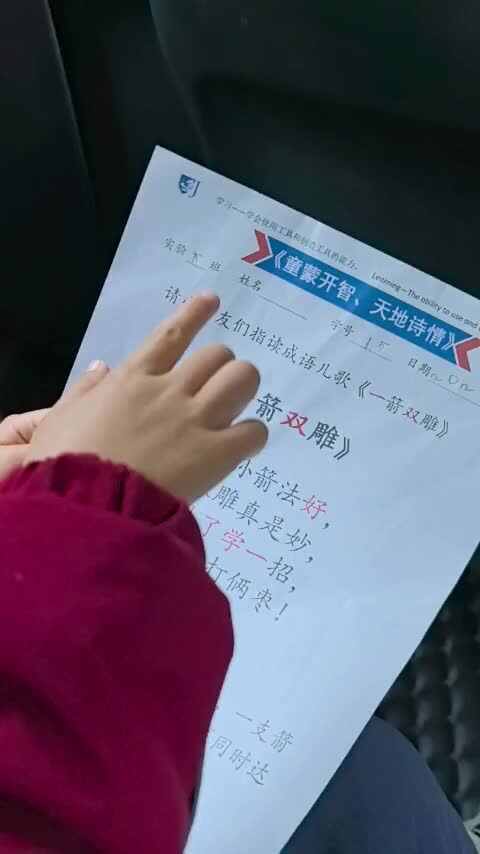 学习——学会使用工具和创立工具的能力。 Learning—The ability to use and
《童蒙开智、天地诗情》
实验 班 姓名 学号 15 日期
请 友们指读成语儿歌《一箭双雕》
箭双雕》
箭法好，
雕真是妙，
了学一招，
打俩枣！
一支箭
同时达